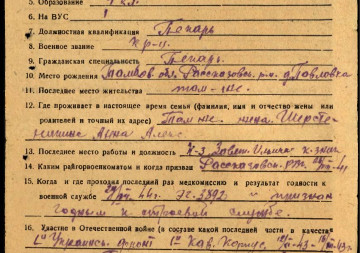 5. Образование 4 кл.
6. На ВУС 1
7. Должностная квалификация Пекарь
8. Военное звание кр-ц
9. Гражданская специальность Пекарь
10. Место рождения Тамбов. обл. Рассказовск. р-н. д. Павловка
11. Последнее место жительства там-же
12. Где проживает в настоящее время семья (фамилия, имя и отчество жены или
родителей и точный их адрес) Там же жена
Анна Алекс
13. Последнее место работы и должность Завет. Ильича
14. Каким райгорвоенкоматом и когда призван Рассказовск. РВК
15. Когда и где проходил последний раз медкомиссию и результат годности к
военной службе 44г. признан
годным к строевой службе.
16. Участие в Отечественной войне (в составе какой последней части в качестве
1й Украинск. фронт 1й Кав. Корпус.